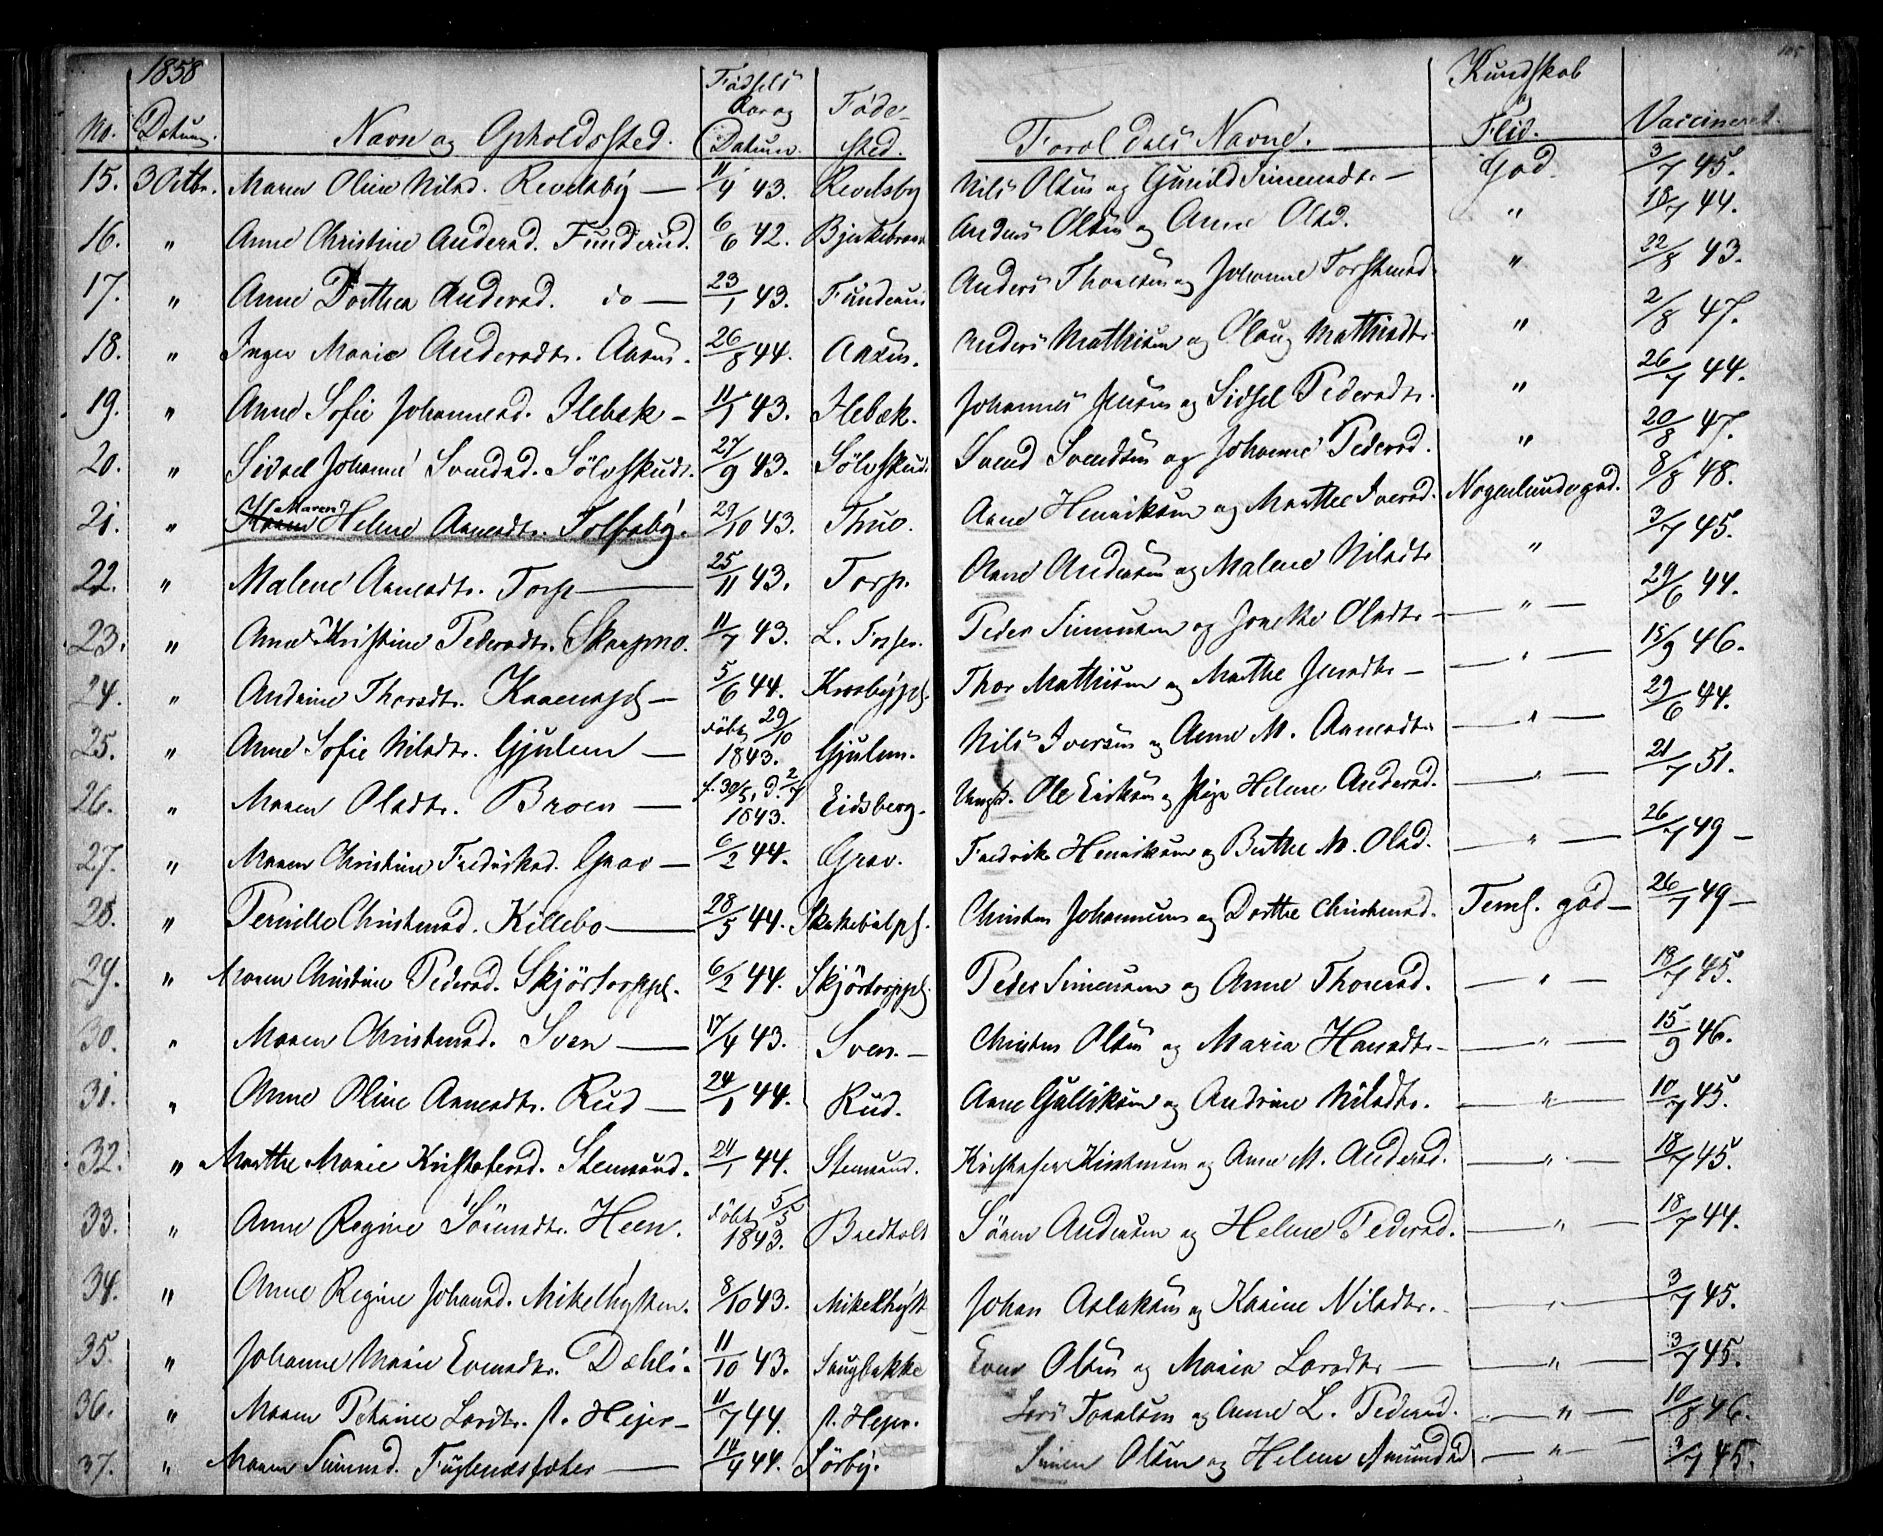 1858
105
No. Datum. Navn og Opholdssted. Fødsels Aar og Datum. Føde-sted. Foræl dres Navne. Kundskab & Flid. Vaccineret.
15. 3 Octbr. Maren Oline Nilsd. Revelsby — 11/4 43. Revelsby Nils Olsen og Gunild Simensdtr. — God. 3/7 45.
16. " Anne Christine Andersd. Funderud. 6/6 42. Anders Olsen og Anne Olsd. " 18/7 44.
17. " Anne Dorthea Andersd. do — 23/1 43. Funderud Anders Thoresen og Johanne Torstensd. " 22/8 43.
18. " Inger Marie Andersdtr. Aasen. 26/8 44. Aasen. Anders Mathisen og Olaug Mathisdtr. " 2/8 47.
19. " Anne Sofie Johannesd. Ilebek — 11/1 43. Ilebæk. Johannes Jensen og Sidsel Pedersdtr. " 26/7 44.
20. " Sidsel Johanne Svendsd. Sölvskudt. 27/9 43. Sölvskud. Svend Svendsen og Johanne Pedersd. " 20/8 47.
21. " Maren Helene Arnesdtr. Tolfsby. 29/10 43. Thuo. Arne Henriksen og Marthe Iversd. Nogenlunde god. 8/8 48.
22. " Malene Arnesdtr. Torp — 25/11 43. Torp. Arne Andersen og Malene Nilsdtr. " 3/7 45.
23. " Anne Kristine Pedersdtr. Skarpmo. 11/7 43. L. Fosser. Peder Simensen og Olsdtr — " — 29/6 44.
24. " Andrine Thorsdtr. — 5/6 44. Krosbÿpl. Thor Mathisen og Marthe Jensdtr — — " — 15/9 46.
25. " Anne Sofie Nilsdtr. Gjulem — Födt 29/10 1843. Gjulem. Nils Iversen og Anne M. Arnesdtr — " — 29/6 44.
26. " Maren Olsdtr. Broen — f. 30/5, d. 2/7 1843. Eidsberg. Ungk. Ole Eriksen og Pige Helene Andersd. — " — 21/7 51.
27. " Maren Christine Fredriksd. Grav — 6/2 44. Grav. Fredrik Henriksen og Berthe M. Olsd. — " — 26/7 49 —
28. " Pernille Christensd. Killebo — 28/5 44. Christen Johannesen og Dorthe Christensd. Teml. god — 26/7 49 —
29. " Maren Christine Pedersd. Skjörtorppl. 6/2 44. Skjörtorppl. Peder Simensen og Anne Thoresd. — " — 18/7 45.
30. " Maren Christensd. Sven — 17/4 43. Sven. — Christen Olsen og Maria Hansdtr — " — 15/9 46.
31. " Anne Oline Arnesdtr. Rud — 24/1 44. Rud. Arne Gulliksen og Andrine Nilsdtr. — " — 10/7 45.
32. " Marthe Marie Kristofersd. Stensrud. 24/1 44. Stensrud. Kristofer Kristensen og Anne M. Andersd. — " — 18/7 45.
33. " Anne Regine Sörensdtr. Heen. Födt 5/5 1843. Bredholt Sören Andersen og Helene Pedersd. — " — 18/7 44.
34. " Anne Regine Johansd. Mikelhytten. 8/10 43. Mikelhytt Johan Aslaksen og Karine Nilsdtr. — " — 3/7 45.
35. " Johanne Marie Evensdtr. Dæhli. 11/10 43. Haugbakke Even Olsen og Maria Larsdtr — — " — 3/7 45.
36. " Maren Petrine Larsdtr. st. Hejer — 11/7 44. st. Hejer. Lars Torolsen og Anne L. Pedersd. — " — 10/8 46.
37. " Maren Simensd. — 14/4 44. Sörby. Simen Olsen og Helene Amundsd — " — 3/7 45.